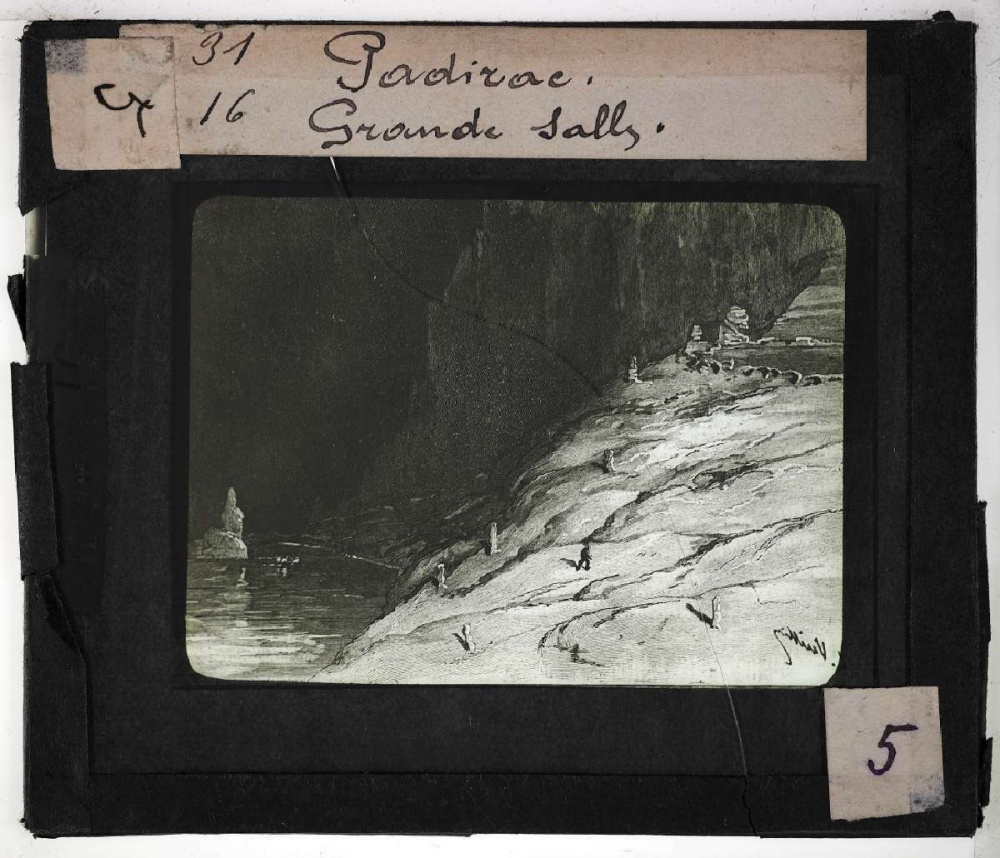 31 Padirac.
16 Grande Salle.
5